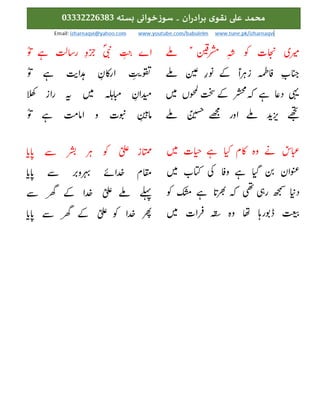 محمد علی نقوی برادران ۔ سوزخوانی بستہ 03332226383
Email: izharnaqvi@yahoo.com www.youtube.com/babulelm www.tune.pk/izharnaqvi
میری نجات کو شہِ مشرقین ؑ ملے
جنابِ فاطمہ زہراؑ کے نورِ عین ملے
یہی دعا ہے کہ محشر کے سخت لمحوں میں
تجھے یزید ملے اور مجھے حسینؑ ملے
اے بنتِ نبیؐ جزوِ رسالت ہے توؑ
تقویتِ ارکانِ ہدایت ہے توؑ
میدانِ مباہلہ میں یہ راز کھلا
مابینِ نبوت و امامت ہے توؑ
عباسؑ نے وہ کام کیا ہے حیات میں
عنوان بن گیا ہے وفا کی کتاب میں
دنیا سمجھ رہی تھی کہ بھرتا ہے مشک کو
بیعت ڈبو رہا تھا وہ سقہ فرات میں
ممتاز علیؑ کو ہر بشر سے پایا
مقام خدائے بحروبر سے پایا
پہلے ملے علیؑ خدا کے گھر سے
پھر خدا کو علیؑ کے گھر سے پایا